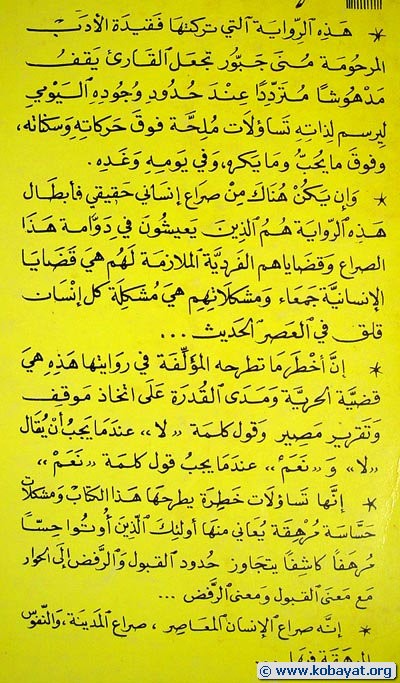 * هَذِهِ الرِّوَايَة الَّتي تركتهَا فَقيدَة الأدَبْ
المرحُومَة مُنى جَبُّور تجعَل القَارئ يَقفُ
مَدْهُوشًا مُتردّدًا عِنْدَ حُدُودِ وُجُودِهِ اليَوْمِي
ليَرسم لِذاتِهِ تَسَاؤلات مُلِحَّة فوقَ حَركاتِهِ وَسَكناتِه،
وَفوقَ مَا يُحِبُّ وما يَكره، وَفي يَومِهِ وَغَدِه.
* وَإِن يَكنْ هُنَاكَ مِنْ صِراع إنسَاني حَقيقي فأبطَال
هَذِهِ الرِّوَايَة هُمُ الذِينَ يعيشُونَ في دَوَّامَة هَذَا
الصراع وَقضَاياهم الفَرديَّة الملازمَة لَهُم هي قَضَايَا
الإنسَانيَّة جَمعَاء وَمشكلَاتهِم هيَ مُشكلَة كل إنسَان
قلق في العَصْر الحَديث ...
* إنَّ أخْطَر مَا تطرحه المؤلِّفَة في رِوَايتهَا هَذِهِ هيَ
قضيَّة الحريَّة وَمَدَى القُدرَة عَلَى اتخَاذ مَوقِف
وَتقرير مَصِير وَقول كلمَة «لا» عندمَا يَجبُ أنْ يُقال
«لا» وَ «نَعَمْ» عندَمَا يجبُ قول كلمَة «نَعَمْ»
* إنَّهَا تسَاؤلات خَطِرَة يطرحهَا هَذا الكتابْ وَمشكلات
حَسَّاسَة مُرْهِقَة يُعَاني منهَا أولئِكَ الَّذِينَ أُوتُوا حِسًّا
مُرهَفًا كاشِفًا يتجَاوز حُدود القبول وَالرَّفض إلى الحِوار
مَع مَعنَى القبول وَمعنى الرَّفض ...
* إنَّه صرَاع الإنسَان المعَاصِر، صِراع المَدينَة، وَالنّفُوس
المرهقَة فيهَا ...
www.kobayat.org ©